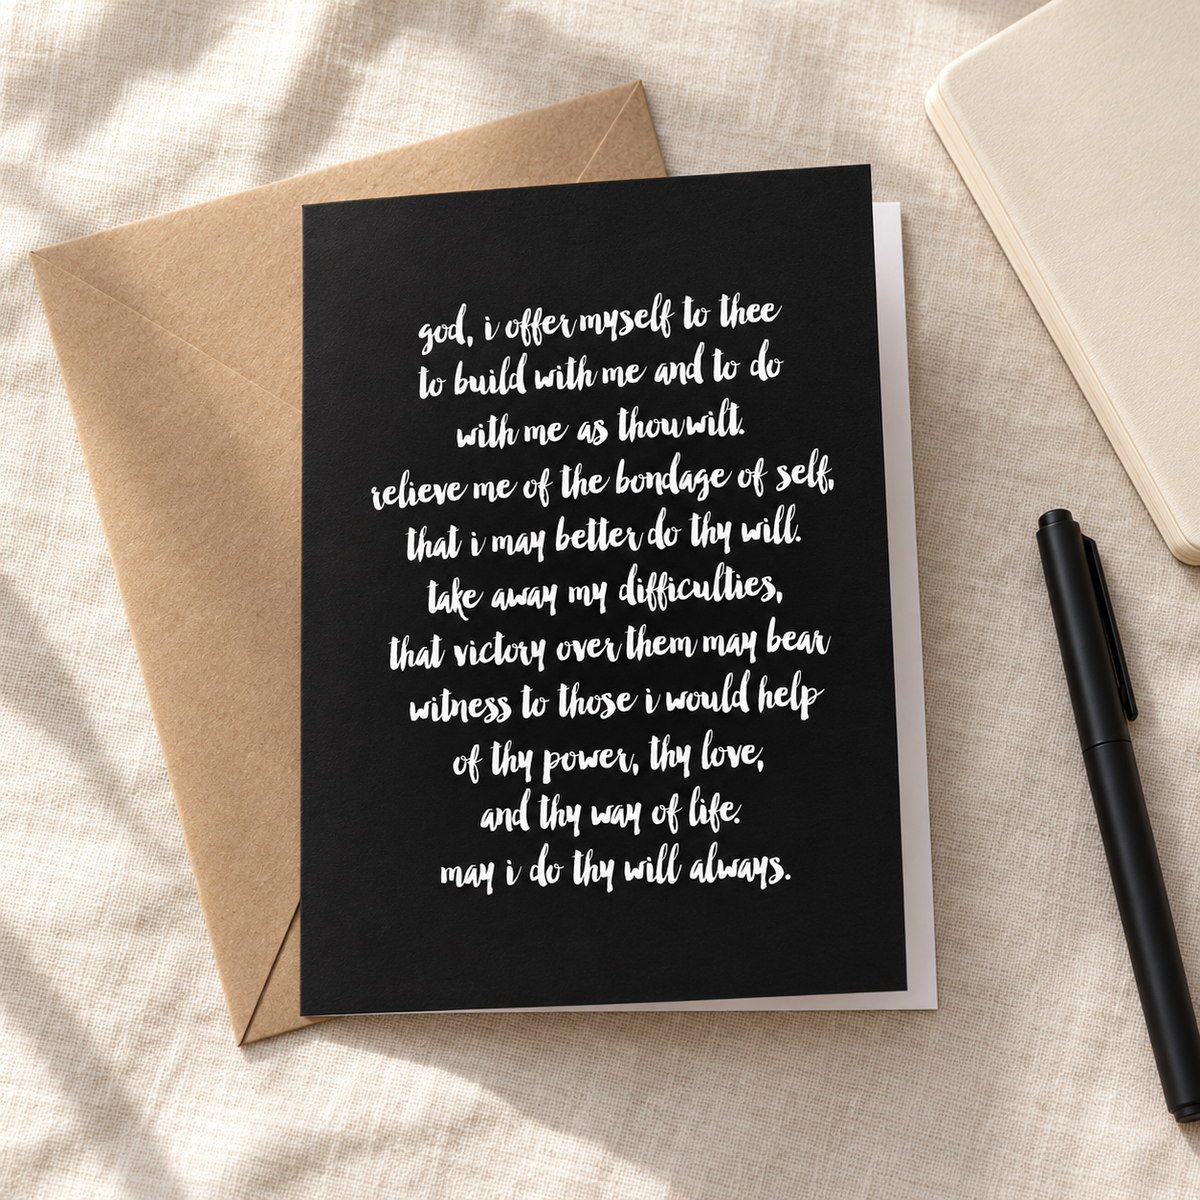 god, i offer myself to thee
to build with me and to do
with me as thou wilt.
relieve me of the bondage of self,
that i may better do thy will.
take away my difficulties,
that victory over them may bear
witness to those i would help
of thy power, thy love,
and thy way of life.
may i do thy will always.